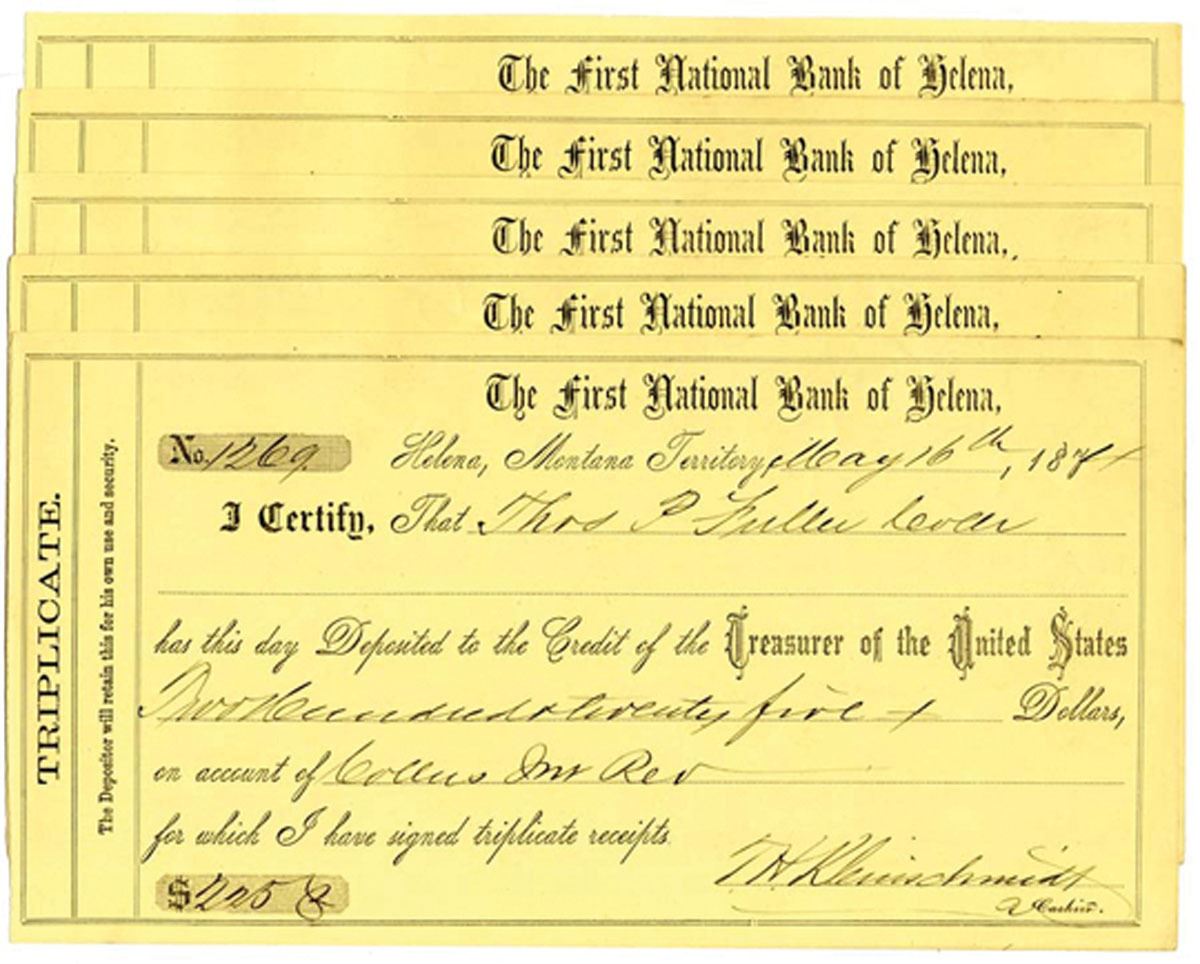 The First National Bank of Helena,
The First National Bank of Helena,
The First National Bank of Helena,
The First National Bank of Helena,
The First National Bank of Helena,
No. 1269. Helena, Montana Territory, May 16th, 187
I Certify, That Thos P Fuller
has this day Deposited to the Credit of the Treasurer of the United States
Two Hundred & twenty five Dollars,
on account of Rev
for which I have signed triplicate receipts.
T H Kleinschmidt
$225 Cashier.
TRIPLICATE.
The Depositor will retain this for his own use and security.